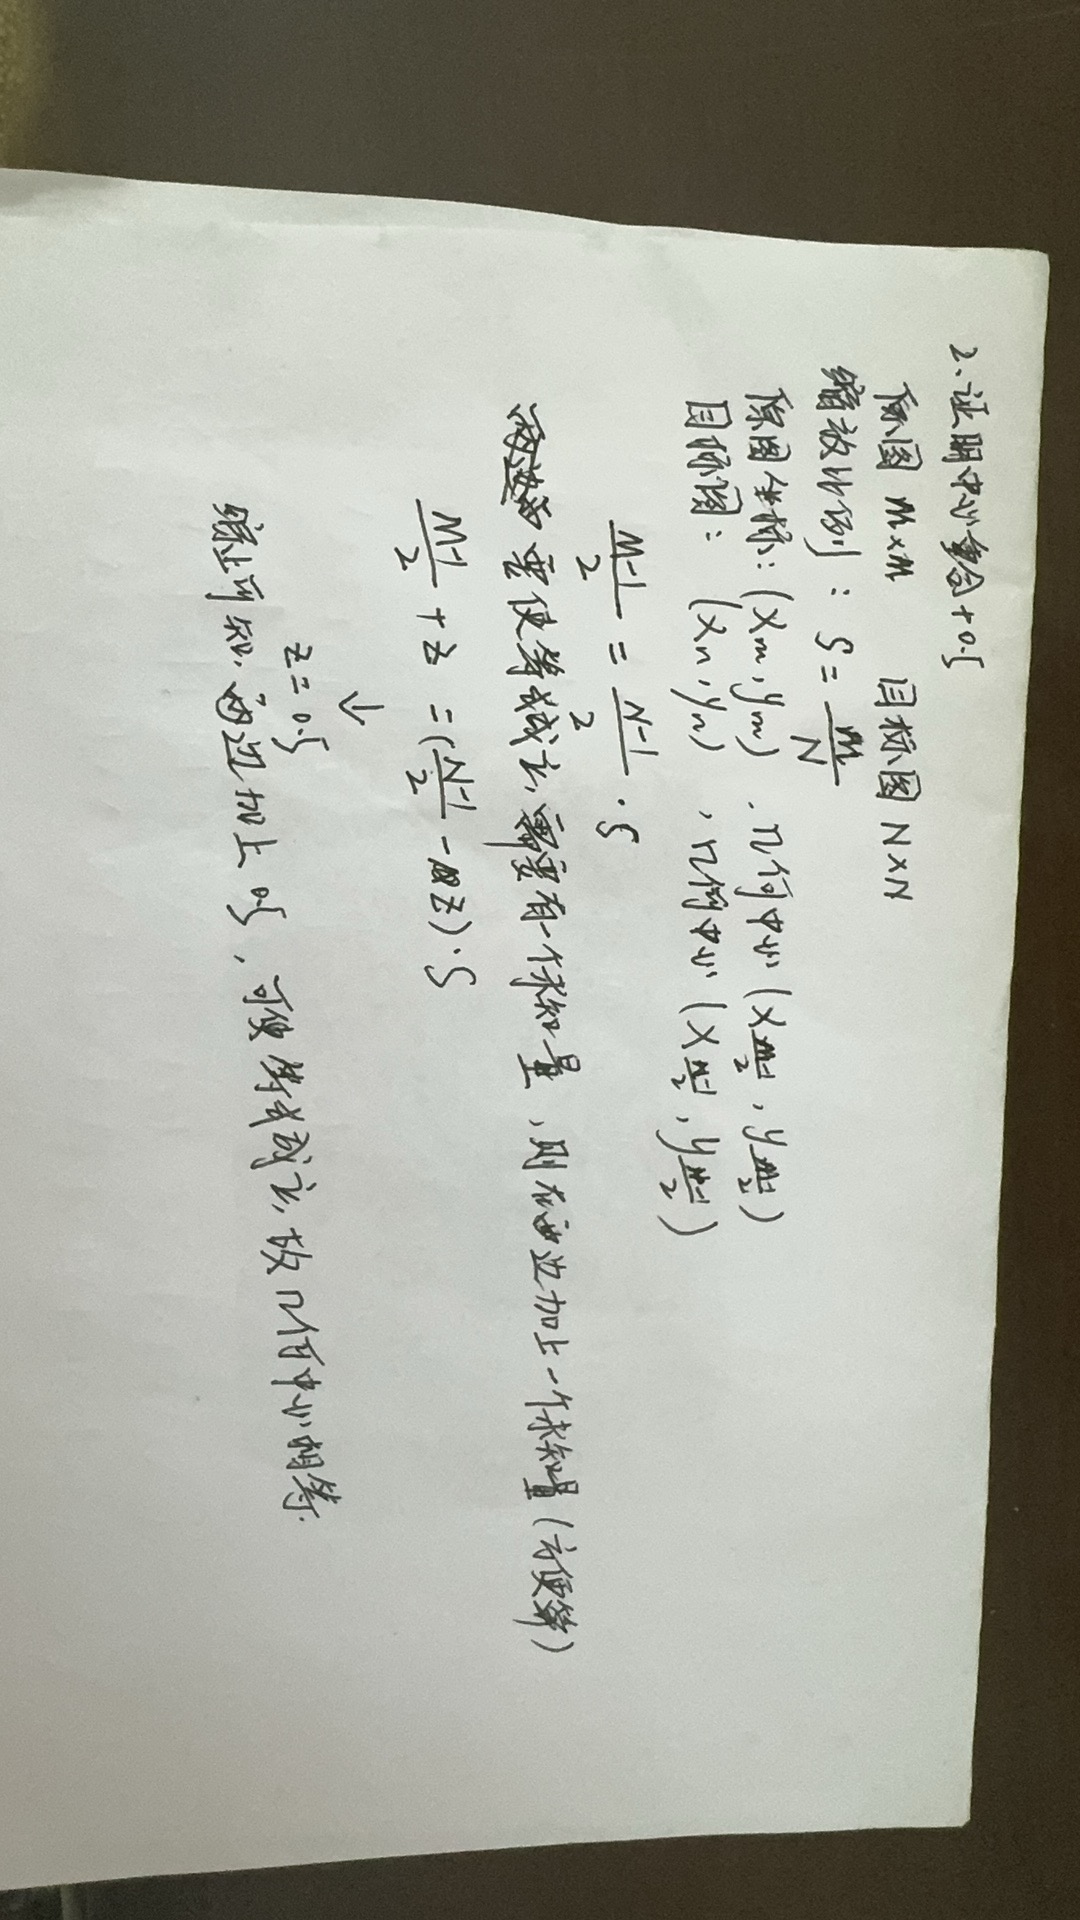 2. 证明中心重合+0.5
原图 M×M 目标图 N×N
缩放比例：S = M/N
原图坐标：(Xm, ym)，几何中心 (X_{\frac{m-1}{2}}, y_{\frac{m-1}{2}})
目标图：(Xn, yn)，几何中心 (X_{\frac{n-1}{2}}, y_{\frac{n-1}{2}})
\frac{M-1}{2} = \frac{N-1}{2} · S
要使等式成立，需要有一个未知量，则在两边加上一个未知量（方便算）
\frac{M-1}{2} + Z = (\frac{N-1}{2} - Z) · S
↓
Z = 0.5
综上所知，两边加上 0.5，可使等式成立，故几何中心相等.